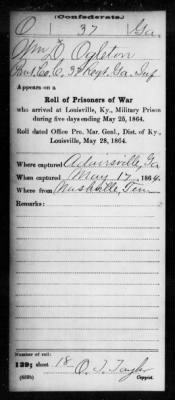 (Confederate.)
O 37 Ga.
Wm D. Ogleton
Pvt. Co. C, 37 Regt. Ga. Inf.
Appears on a
Roll of Prisoners of War
who arrived at Louisville, Ky., Military Prison
during five days ending May 25, 1864.
Roll dated Office Pro. Mar. Genl., Dist. of Ky.,
Louisville, May 28, 1864.
Where captured Adairsville, Ga
When captured May 17, 1864.
Where from Nashville, Ten
Remarks:
Number of roll:
129; sheet 18 O. J. Taylor
Copyist.